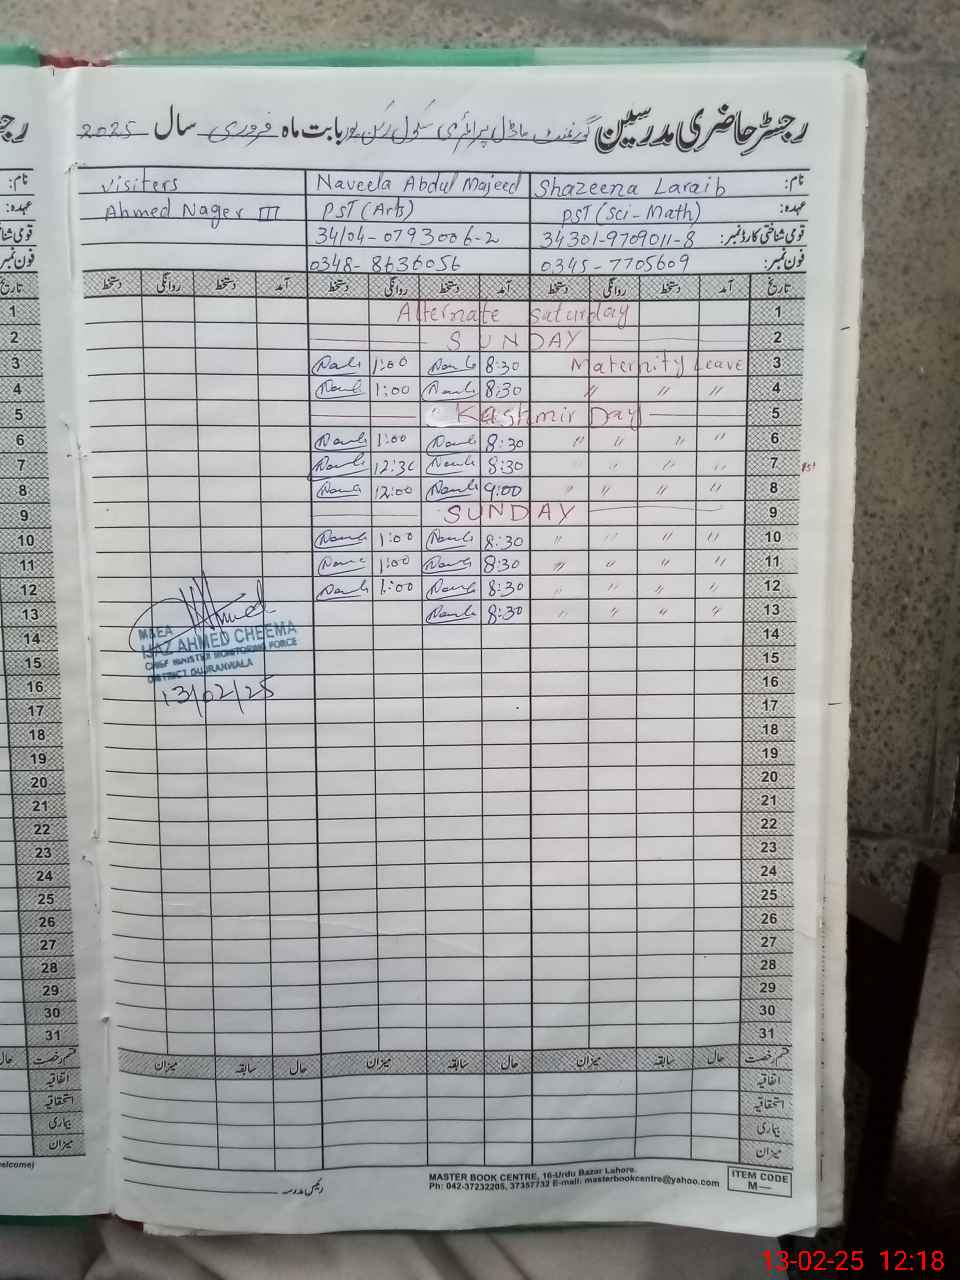 رجسٹر حاضری مدرسین گورنمنٹ ماڈل پرائمری سکول بابت ماہ فروری سال 2025
نام: Shazeena Laraib Naveela Abdul Majeed Visiters
عہدہ: PST (Sci-Math) PST (Arts) Ahmed Nager III
قومی شناختی کارڈ نمبر: 34301-9709011-8 34104-0793006-2
فون نمبر: 0345-7705609 0348-8636056
تاریخ آمد دستخط روانگی دستخط آمد دستخط روانگی دستخط آمد دستخط روانگی دستخط
1 Alternate Saturday
2 SUNDAY
3 Maternity Leave 8:30 1:00
4 〃 〃 〃 8:30 1:00
5 Kashmir Day
6 〃 〃 〃 〃 8:30 1:00
7 〃 〃 〃 〃 8:30 12:30
8 〃 〃 〃 〃 9:00 12:00
9 SUNDAY
10 〃 〃 〃 〃 8:30 1:00
11 〃 〃 〃 〃 8:30 1:00
12 〃 〃 〃 〃 8:30 1:00
13 〃 〃 〃 〃 8:30
14
15
16
17
18
19
20
21
22
23
24
25
26
27
28
29
30
31
MEA
IJAZ AHMED CHEEMA
CHIEF MINISTER MONITORING FORCE
DISTRICT GUJRANWALA
13/02/25
قسم رخصت حال سابقہ میزان حال سابقہ میزان حال سابقہ میزان
اتفاقیہ
استحقاقیہ
بیماری
میزان
رئیس مدرسہ
MASTER BOOK CENTRE, 16-Urdu Bazar Lahore.
Ph: 042-37232205, 37357732 E-mail: masterbookcentre@yahoo.com
ITEM CODE
M—
13-02-25 12:18